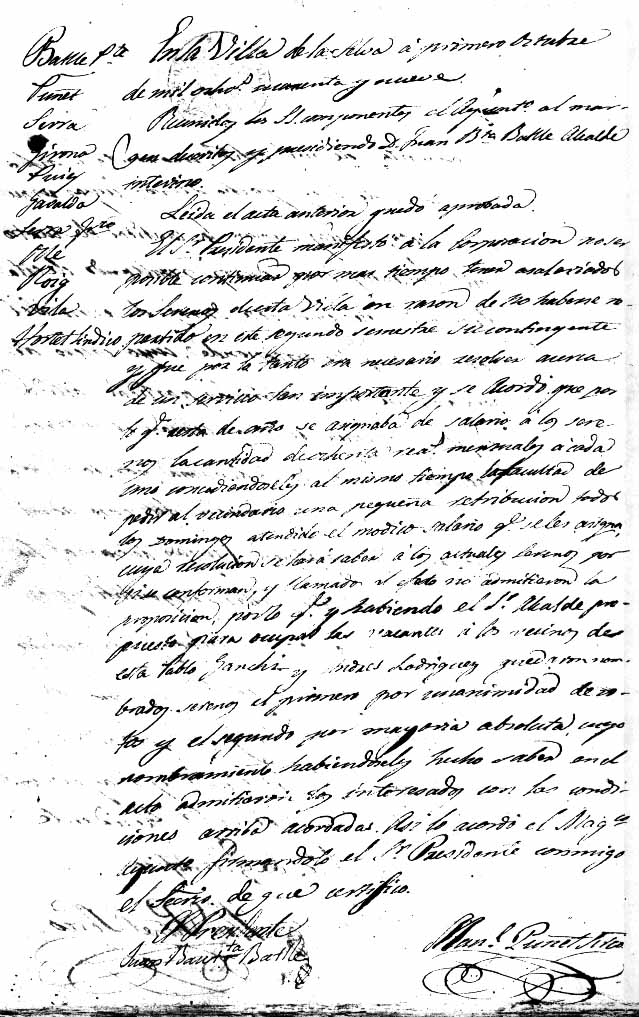 Batlle Pte
Puñet
Serra
Girona
Puig
Gavaldá
Olé
Roig
Vila
Hortet Síndico
En la Villa de la Selva á primero Octubre
de mil ochos. noventa y nueve.
Reunidos los SS. componentes el Ayunto. al mar-
gen descritos y presidiendo D. Juan Bta. Batlle Alcalde
interino.
Leida el acta anterior quedó aprobada.
El Sr. Presidente manifestó á la Corporacion no ser
posible continuar por mas tiempo tener asalariados
los Serenos de esta Villa en razon de no haberse re-
partido en este segundo semestre su contingente
y que por lo tanto era necesario resolver acerca
de un servicio tan importante y se Acordó que por
lo q. resta de año se asignaba de salario á los sere-
nos la cantidad de ochenta rea.s mensuales á cada
uno concediendoseles al mismo tiempo la facultad de
pedir al vecindario una pequeña retribucion todos
los Domingos atendido el modico salario q. se les asigna,
cuya resolucion se hará saber á los actuales Serenos por
si se conforman, y llamados al efecto no admitieron la
proposicion, por lo q. y habiendo el Sr. Alcalde pro-
puesto para ocupar las vacantes á los vecinos de
esta Pablo y Andres Rodriguez quedaron nom-
brados serenos el primero por unanimidad de vo-
tos y el segundo por mayoria absoluta, cuyo
nombramiento habiendoseles hecho saber en el
acto admitieron los interesados con las condi-
ciones arriba acordadas. Asi lo acordó el Magco.
Ayunto. firmandolo el Sr. Presidente conmigo
el Secrio. de que certifico.
El Presidente
Juan Bautta. Batlle
Manl. Puñet Srio